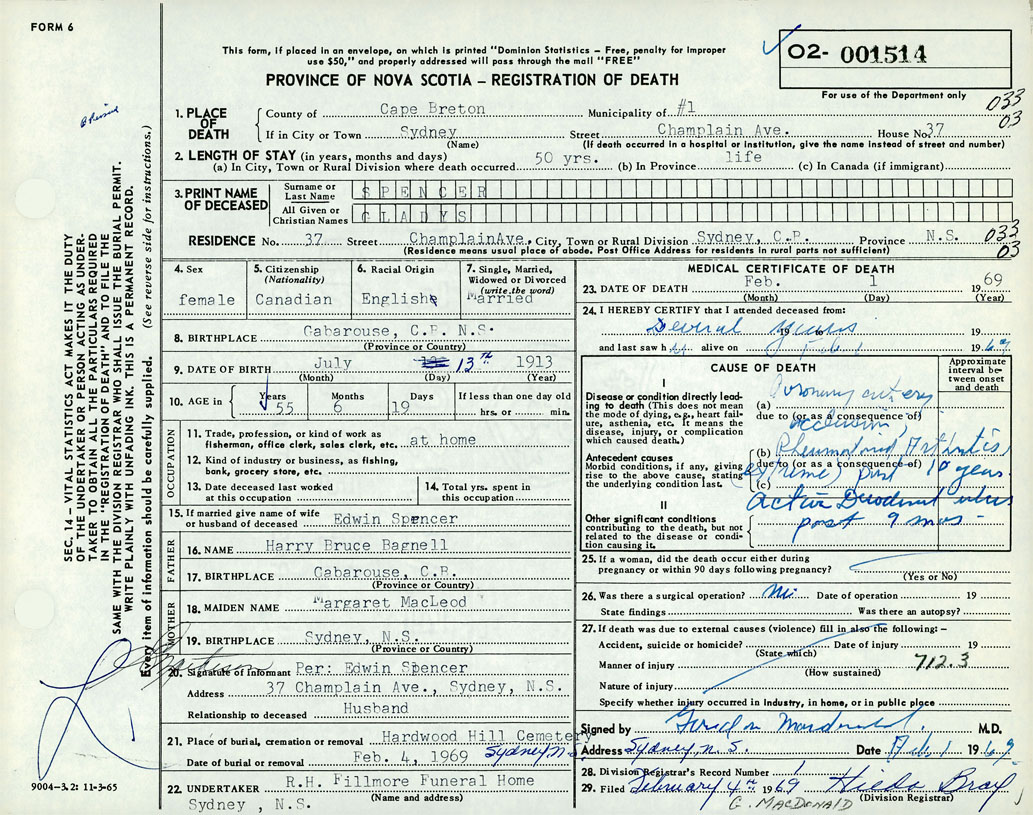 FORM 6
This form, if placed in an envelope, on which is printed "Dominion Statistics – Free, penalty for improper
use $50," and properly addressed will pass through the mail "FREE"
O2- 001514
For use of the Department only
PROVINCE OF NOVA SCOTIA – REGISTRATION OF DEATH
033
03
1. PLACE OF DEATH
County of Cape Breton Municipality of #1
If in City or Town Sydney Street Champlain Ave. House No. 37
(Name) (If death occurred in a hospital or institution, give the name instead of street and number)
2. LENGTH OF STAY (in years, months and days)
(a) In City, Town or Rural Division where death occurred 50 yrs. (b) In Province life (c) In Canada (if immigrant)
3. PRINT NAME OF DECEASED
Surname or Last Name SPENCER
All Given or Christian Names GLADYS
RESIDENCE No. 37 Street ChamplainAve. City, Town or Rural Division Sydney, C.B. Province N.S. 033
03
(Residence means usual place of abode. Post Office Address for residents in rural parts not sufficient)
SEC. 14 – VITAL STATISTICS ACT MAKES IT THE DUTY
OF THE UNDERTAKER OR PERSON ACTING AS UNDER-
TAKER TO OBTAIN ALL THE PARTICULARS REQUIRED
IN THE "REGISTRATION OF DEATH" AND TO FILE THE
SAME WITH THE DIVISION REGISTRAR WHO SHALL ISSUE THE BURIAL PERMIT.
WRITE PLAINLY WITH UNFADING INK. THIS IS A PERMANENT RECORD.
Every item of information should be carefully supplied. (See reverse side for instructions.)
4. Sex female
5. Citizenship (Nationality) Canadian
6. Racial Origin English
7. Single, Married, Widowed or Divorced (write the word) Married
8. BIRTHPLACE Gabarouse, C.B. N.S.
(Province or Country)
9. DATE OF BIRTH July 13th 1913
(Month) (Day) (Year)
10. AGE in Years 55 Months 6 Days 19 If less than one day old hrs. or min.
OCCUPATION
11. Trade, profession, or kind of work as
fisherman, office clerk, sales clerk, etc. at home
12. Kind of industry or business, as fishing,
bank, grocery store, etc.
13. Date deceased last worked
at this occupation
14. Total yrs. spent in
this occupation
15. If married give name of wife
or husband of deceased Edwin Spencer
FATHER
16. NAME Harry Bruce Bagnell
17. BIRTHPLACE Gabarouse, C.B.
(Province or Country)
MOTHER
18. MAIDEN NAME Margaret MacLeod
19. BIRTHPLACE Sydney, N.S.
(Province or Country)
20. Signature of Informant Per: Edwin Spencer
Address 37 Champlain Ave., Sydney, N.S.
Relationship to deceased Husband
21. Place of burial, cremation or removal Hardwood Hill Cemetery
Sydney N.S.
Date of burial or removal Feb. 4, 1969
22. UNDERTAKER R.H. Fillmore Funeral Home
(Name and address)
Sydney , N.S.
9004-3.2: 11-3-65
MEDICAL CERTIFICATE OF DEATH
23. DATE OF DEATH Feb. 1 1969
(Month) (Day) (Year)
24. I HEREBY CERTIFY that I attended deceased from:
Several years 19 to 19
and last saw her alive on Feb 1 1969
CAUSE OF DEATH
Approximate interval between onset and death
I
Disease or condition directly lead-
ing to death (This does not mean
the mode of dying, e.g., heart fail-
ure, asthenia, etc. It means the
disease, injury, or complication
which caused death.)
(a) Coronary artery
due to (or as a consequence of)
occlusion,
Antecedent causes
Morbid conditions, if any, giving
rise to the above cause, stating
the underlying condition last.
(b) Rheumatoid Arthritis
due to (or as a consequence of)
(extreme) past 10 years
(c)
active Duodenal ulcer
past 9 mos -
II
Other significant conditions
contributing to the death, but not
related to the disease or condi-
tion causing it.
25. If a woman, did the death occur either during
pregnancy or within 90 days following pregnancy?
(Yes or No)
26. Was there a surgical operation? No Date of operation 19
State findings Was there an autopsy?
27. If death was due to external causes (violence) fill in also the following: –
Accident, suicide or homicide? Date of injury 19
(State which)
Manner of injury 712.3
(How sustained)
Nature of injury
Specify whether injury occurred in industry, in home, or in public place
Signed by Gordon Macdonald M.D.
Address Sydney, N.S. Date Feb. 1 1969
28. Division Registrar's Record Number 1
29. Filed February 4th 1969 Hilda Bray
G. MACDONALD (Division Registrar)